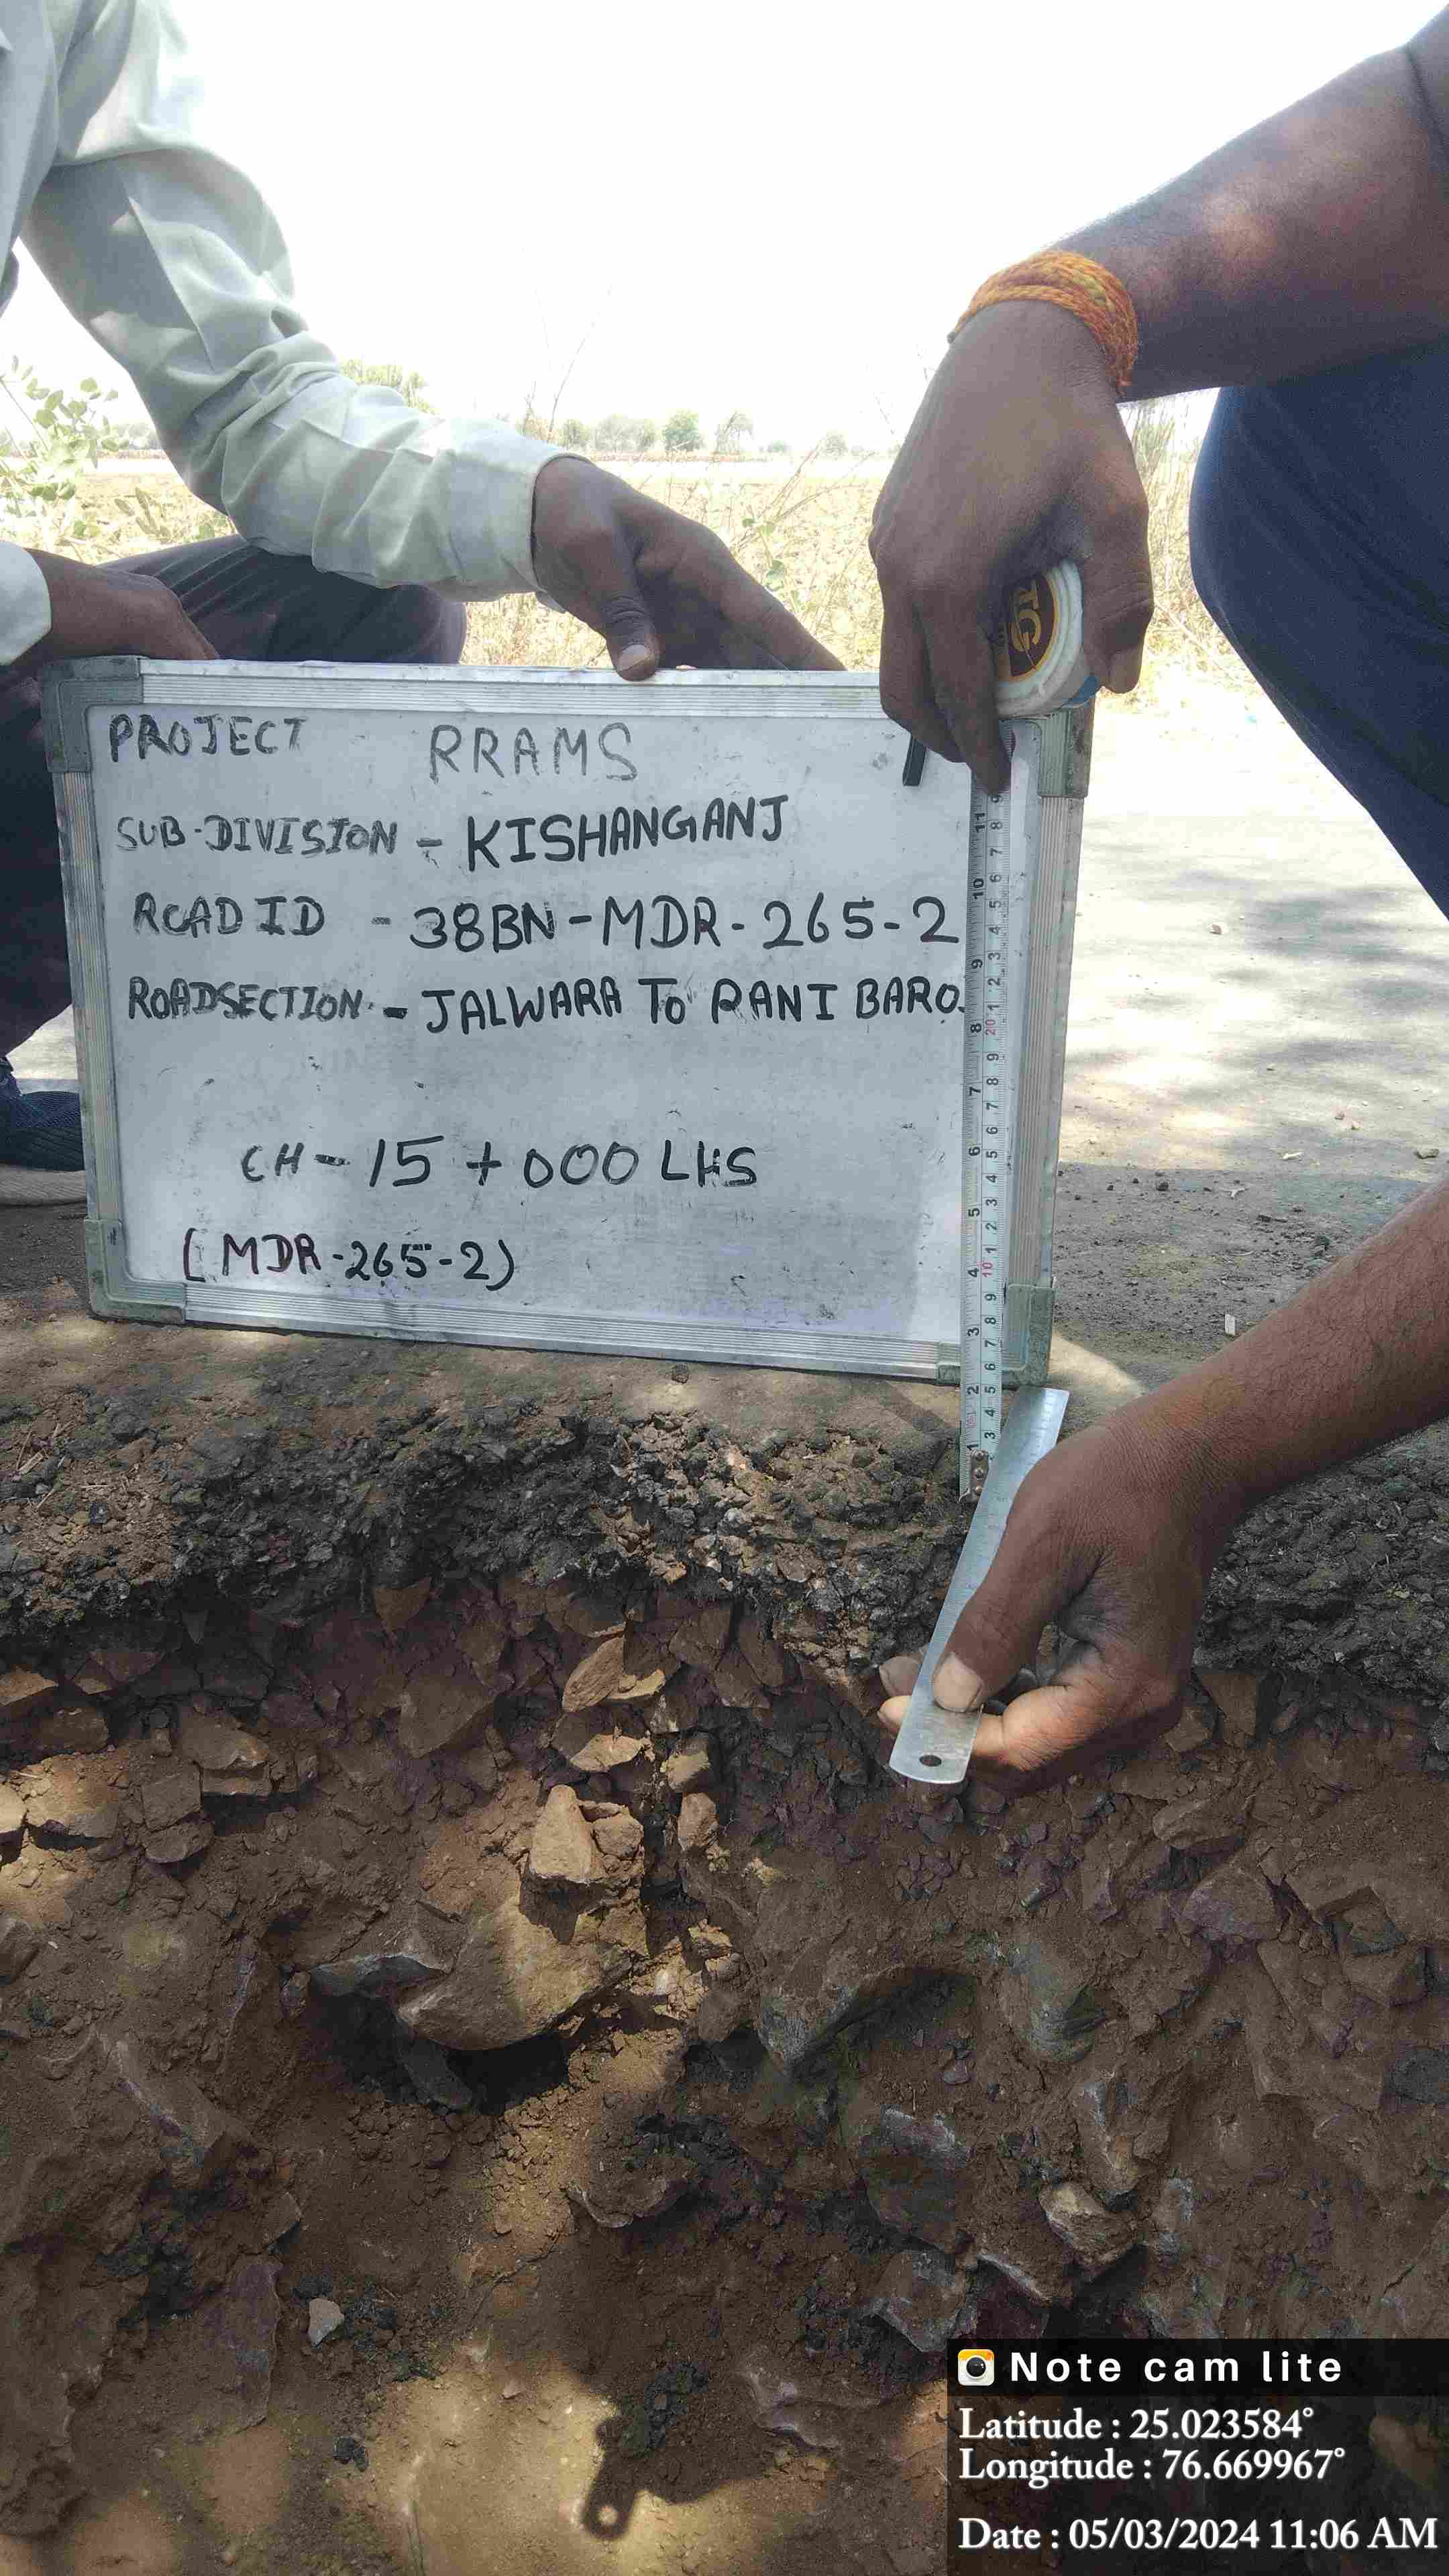 PROJECT RRAMS
SUB-DIVISION - KISHANGANJ
ROAD ID - 38BN-MDR-265-2
ROADSECTION - JALWARA TO RANI BARO.
CH-15+000 LHS
(MDR-265-2)
Note cam lite
Latitude : 25.023584°
Longitude : 76.669967°
Date : 05/03/2024 11:06 AM